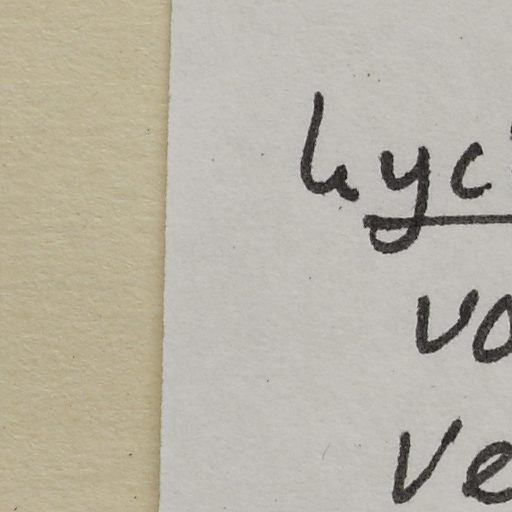 hyc
vo
ve